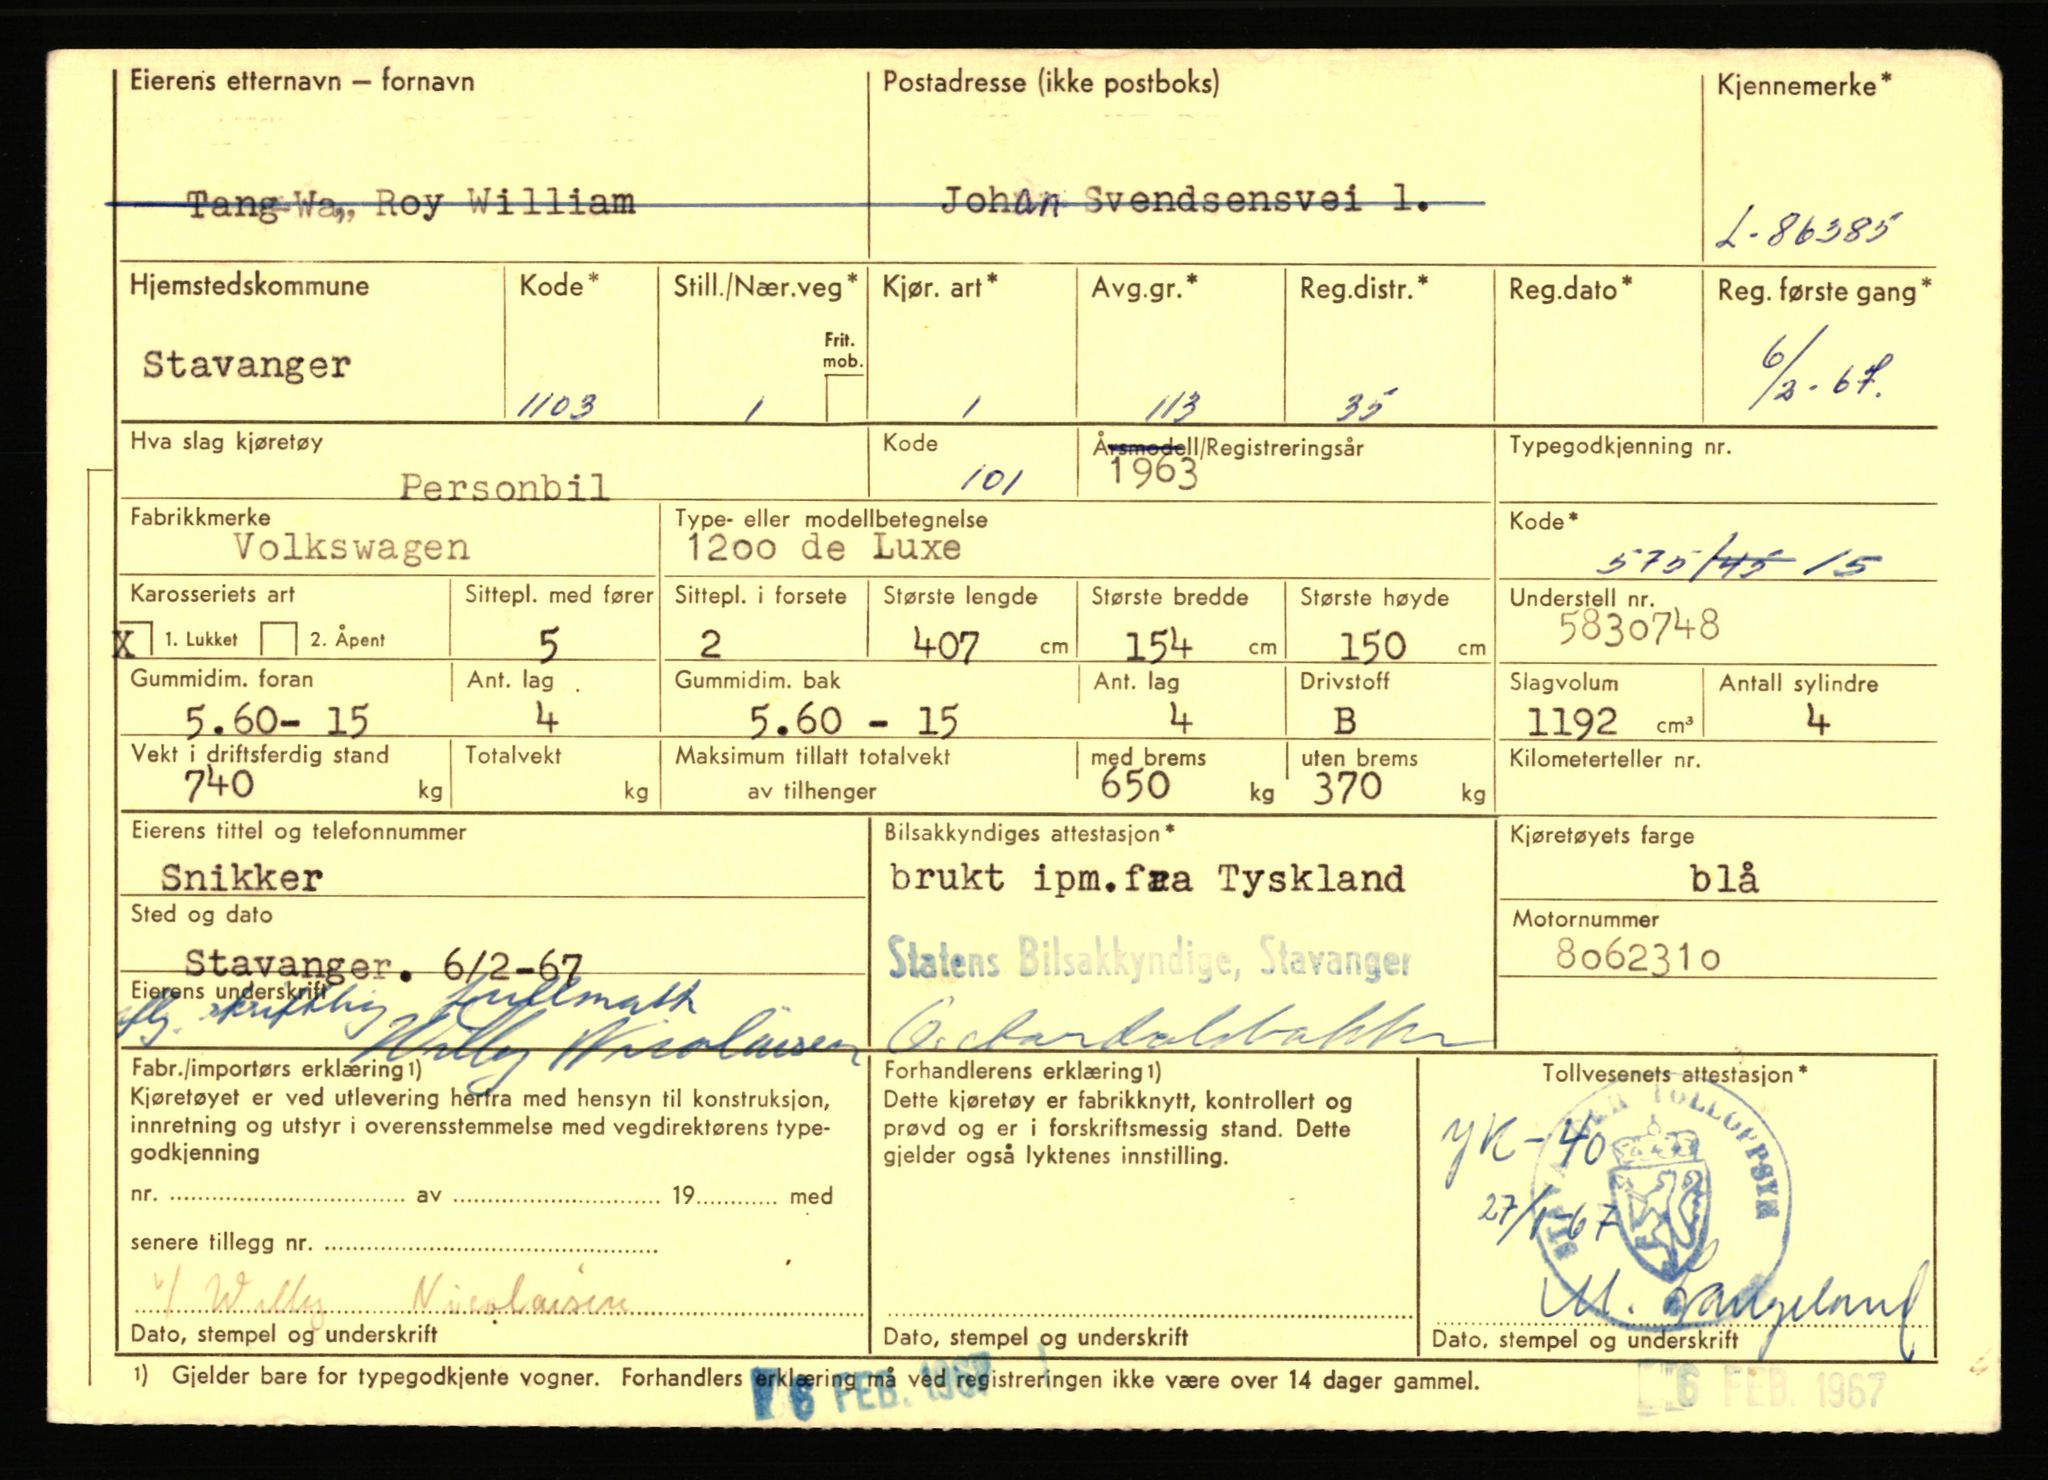 Eierens etternavn — fornavn
Postadresse (ikke postboks)
Kjennemerke*
Tang Wa,, Roy William
Johan Svendsensvei 1.
L-86385
Hjemstedskommune
Kode*
Still./Nær.veg*
Kjør. art*
Avg.gr.*
Reg.distr.*
Reg.dato*
Reg. første gang*
Frit.
mob.
Stavanger
1103
1
1
113
35
6/2-67.
Hva slag kjøretøy
Kode
Årsmodell/Registreringsår
Typegodkjenning nr.
Personbil
101
1963
Fabrikkmerke
Type- eller modellbetegnelse
Kode*
Volkswagen
12oo de Luxe
575/45 15
Karosseriets art
Sittepl. med fører
Sittepl. i forsete
Største lengde
Største bredde
Største høyde
Understell nr.
X 1. Lukket 2. Åpent
5
2
407 cm
154 cm
150 cm
583o748
Gummidim. foran
Ant. lag
Gummidim. bak
Ant. lag
Drivstoff
Slagvolum
Antall sylindre
5.60- 15
4
5.60 - 15
4
B
1192 cm³
4
Vekt i driftsferdig stand
Totalvekt
Maksimum tillatt totalvekt
med brems
uten brems
Kilometerteller nr.
740 kg
kg
av tilhenger
650 kg
370 kg
Eierens tittel og telefonnummer
Bilsakkyndiges attestasjon*
Kjøretøyets farge
Snikker
brukt ipm.fra Tyskland
blå
Sted og dato
Motornummer
Stavanger. 6/2-67
Statens Bilsakkyndige, Stavanger
8o6231o
Eierens underskrift
iflg. skriftlig fullmakt
Willy Nicolaisen
Fabr./importørs erklæring1)
Kjøretøyet er ved utlevering herfra med hensyn til konstruksjon,
innretning og utstyr i overensstemmelse med vegdirektørens type-
godkjenning
nr. .......... av .......... 19.......... med
senere tillegg nr. ..........
Willy Nicolaisen
Dato, stempel og underskrift
Forhandlerens erklæring1)
Dette kjøretøy er fabrikknytt, kontrollert og
prøvd og er i forskriftsmessig stand. Dette
gjelder også lyktenes innstilling.
Dato, stempel og underskrift
Tollvesenets attestasjon*
STAVANGER TOLLOPPSYN
YK-40
27/1-67
M. Langeland
Dato, stempel og underskrift
1) Gjelder bare for typegodkjente vogner. Forhandlers erklæring må ved registreringen ikke være over 14 dager gammel.
6 FEB. 1967
6 FEB. 1967